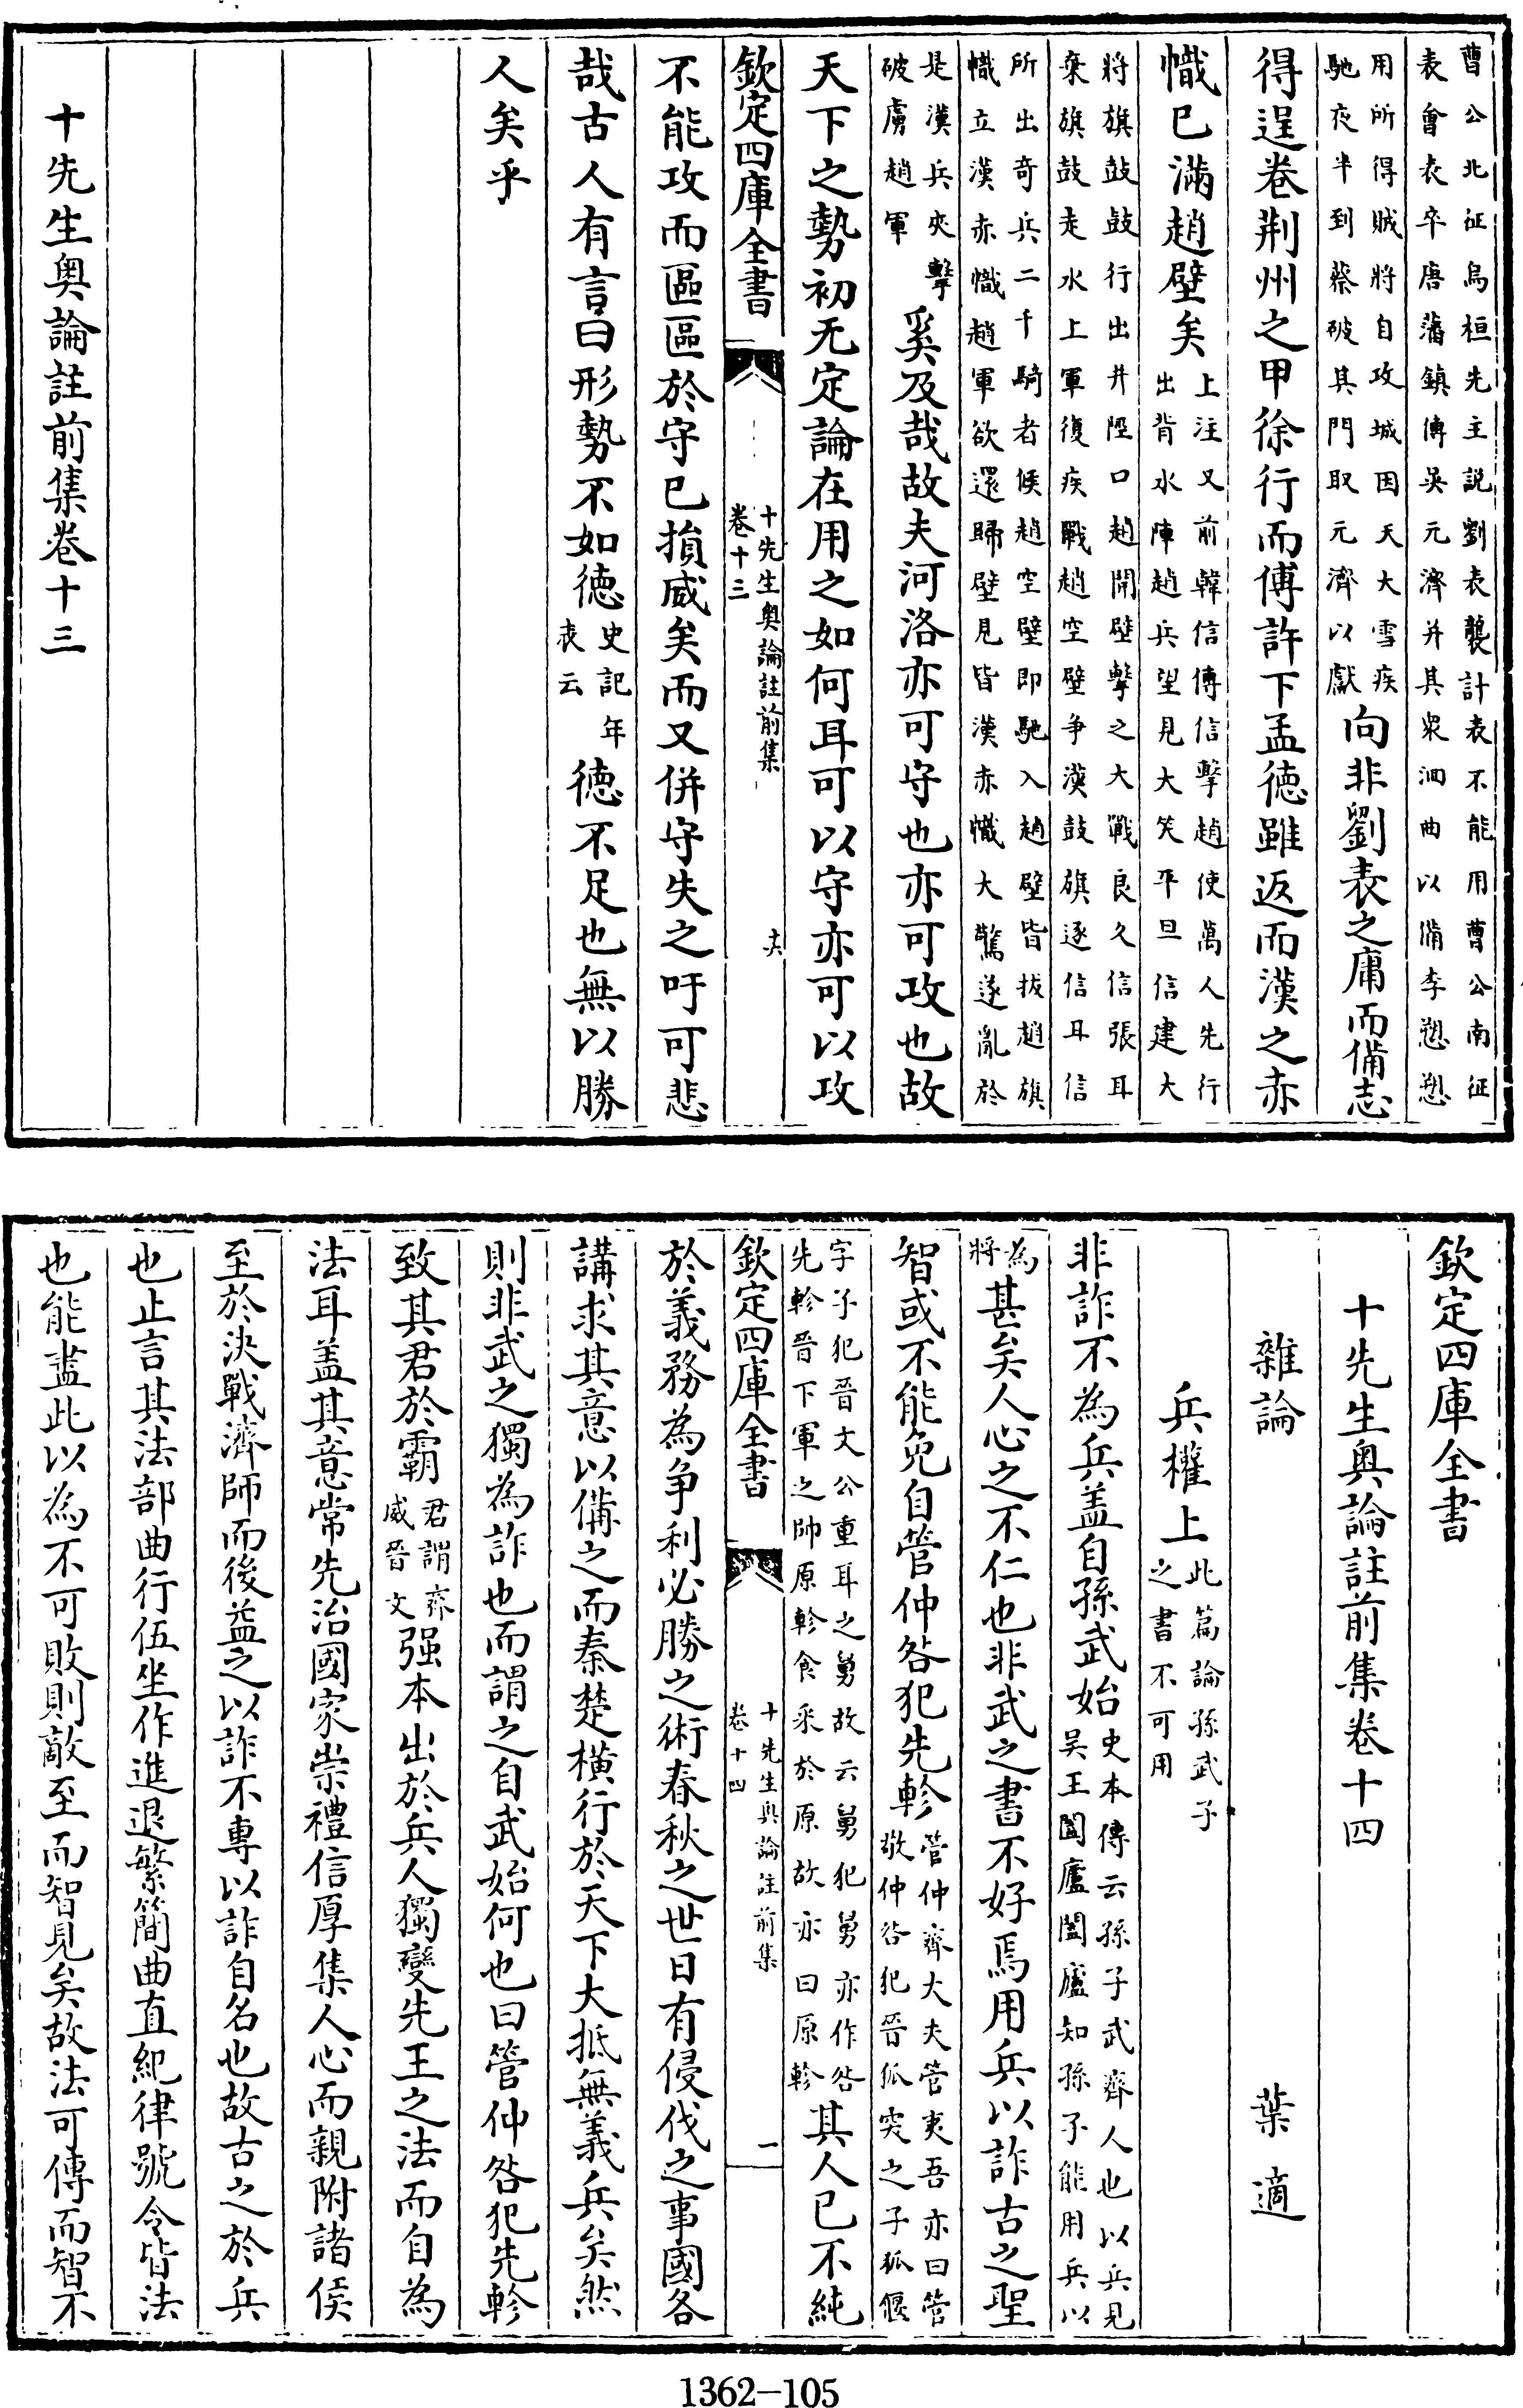 曹公北征烏桓先主説劉表襲計表不能用曹公南征
表會表卒唐藩鎮傳吳元濟并其衆洄曲以備李愬愬
用所得賊將自攻城因天大雪疾
馳夜半到蔡破其門取元濟以獻
向非劉表之庸而備志
得逞卷荆州之甲徐行而傅許下孟德雖返而漢之赤
幟已滿趙壁矣
上注又前韓信傳信擊趙使萬人先行
出背水陣趙兵望見大笑平旦信建大
將旗鼓鼓行出井陘口趙開壁擊之大戰良久信張耳
棄旗鼓走水上軍復疾戰趙空壁争漢鼓旗逐信耳信
所出奇兵二千騎者候趙空壁即馳入趙壁皆拔趙旗
幟立漢赤幟趙軍欲還歸壁見皆漢赤幟大驚遂亂於
是漢兵夾擊
破虜趙軍
奚及哉故夫河洛亦可守也亦可攻也故
天下之勢初无定論在用之如何耳可以守亦可以攻
欽定四庫全書
十先生奥論註前集
卷十三
十六
不能攻而區區於守已損威矣而又併守失之吁可悲
哉古人有言曰形勢不如德
史記年
表云
德不足也無以勝
人矣乎
十先生奥論註前集卷十三
欽定四庫全書
十先生奥論註前集卷十四
雜論
葉適
兵權上
此篇論孫武子
之書不可用
非詐不為兵盖自孫武始
史本傳云孫子武齊人也以兵見
吳王闔廬闔廬知孫子能用兵以
為
將
甚矣人心之不仁也非武之書不好焉用兵以詐古之聖
智或不能免自管仲咎犯先軫
管仲齊大夫管夷吾亦曰管
敬仲咎犯晉狐突之子狐偃
字子犯晉文公重耳之舅故云舅犯舅亦作咎
先軫晉下軍之帥原軫食采於原故亦曰原軫
其人已不純
欽定四庫全書
十先生奥論註前集
卷十四
一
於義務為争利必勝之術春秋之世日有侵伐之事國各
講求其意以備之而秦楚横行於天下大抵無義兵矣然
則非武之獨為詐也而謂之自武始何也曰管仲咎犯先軫
致其君於霸
君謂齊
威晉文
强本出於兵人獨變先王之法而自為
法耳盖其意常先治國家崇禮信厚集人心而親附諸侯
至於決戰濟師而後益之以詐不專以詐自名也故古之於兵
也止言其法部曲行伍坐作進退繁簡曲直紀律號令皆法
也能盡此以為不可敗則敵至而智見矣故法可傳而智不
1362-105